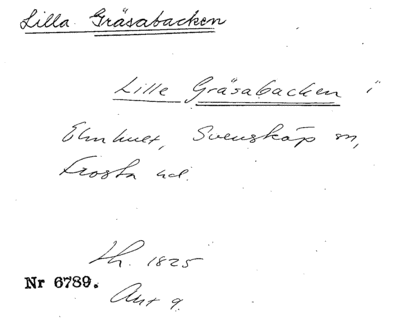 Lilla Gräsabacken
Lille Gräsabacken i
Elmhult, Svensköp sn,
Frosta hd.
Lh. 1825
Nr 6789.
Ant 9.